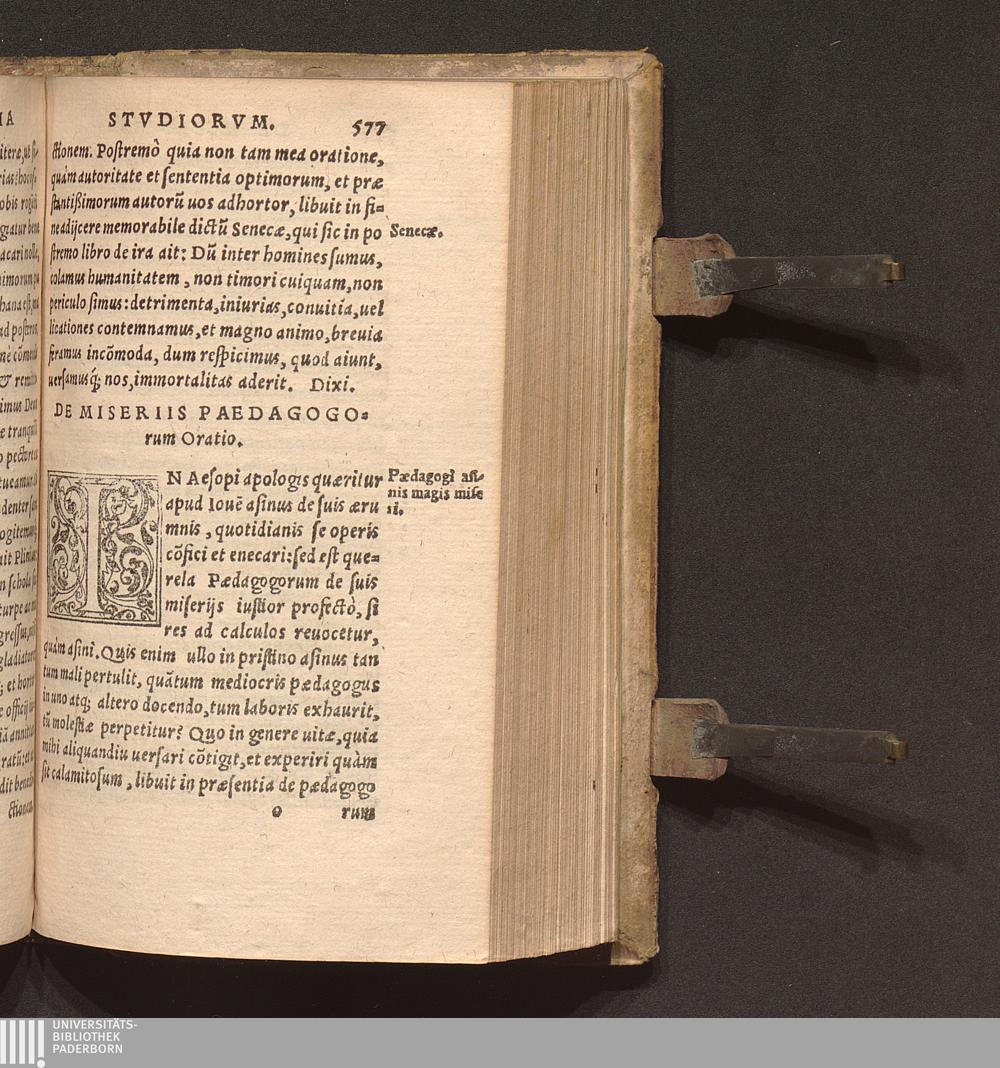 STVDIORVM. 577
ctionem. Postremò quia non tam mea oratione,
quàm autoritate et sententia optimorum, et præ
stantißimorum autorũ uos adhortor, libuit in fi=
ne adijcere memorabile dictũ Senecæ, qui sic in po
Senecæ.
stremo libro de ira ait: Dũ inter homines sumus,
colamus humanitatem, non timori cuiquam, non
periculo simus: detrimenta, iniurias, conuitia, uel
licationes contemnamus, et magno animo, breuia
feramus incõmoda, dum respicimus, quod aiunt,
uersamusq́; nos, immortalitas aderit. Dixi.
DE MISERIIS PAEDAGOGO=
rum Oratio.
IN Aesopi apologis quæritur
apud Iouẽ asinus de suis æru
mnis, quotidianis se operis
cõfici et enecari: sed est que=
rela Pædagogorum de suis
miserijs iustior profectò, si
res ad calculos reuocetur,
Pædagogi asi-
nis magis mise
ri.
quàm asini. Quis enim ullo in pristino asinus tan
tum mali pertulit, quãtum mediocris pædagogus
in uno atq; altero docendo, tum laboris exhaurit,
tũ molestiæ perpetitur? Quo in genere uitæ, quia
mihi aliquandiu uersari cõtigit, et experiri quàm
sit calamitosum, libuit in præsentia de pædagogo
o rum
UNIVERSITÄTS-
BIBLIOTHEK
PADERBORN